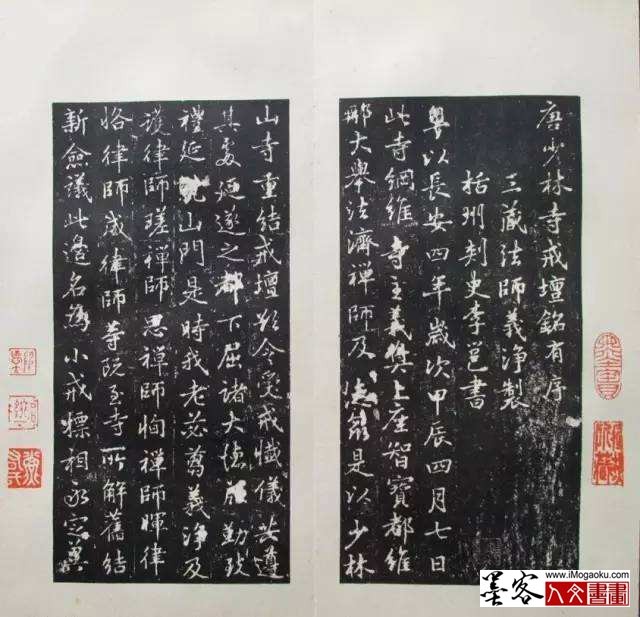 唐少林寺戒壇銘有序
三藏法師義淨製
括州刺史李邕書
粵以長安四年歲次甲辰四月七日
此寺綱維寺主義奬上座智寶都維
那大舉法濟禪師及是以少林
山寺重結戒壇欲令受戒懺儀共遵
其處延邃之都下屈諸大德勤致
禮延就山門是時我老苾蒭義淨及
護律師瑳禪師思禪師恂禪師暉律
恪律師威律師等既至寺所解舊結
新僉議此邊名爲小戒標相永定
墨客
www.iMogaoku.com
人文書畫